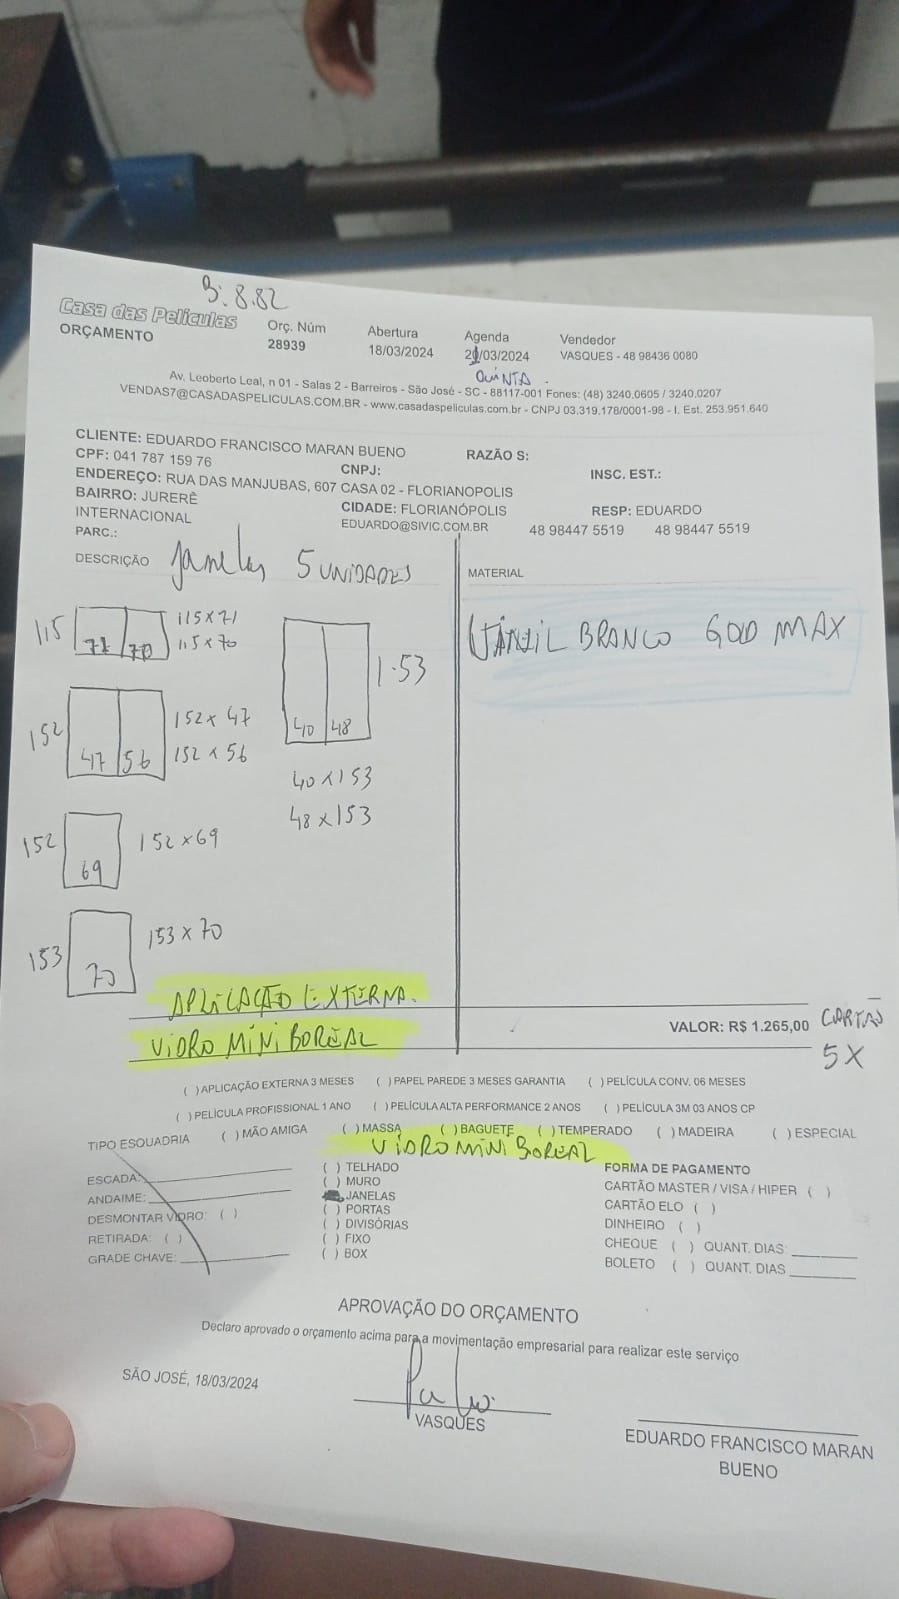 B: 8.82
Casa das Películas
ORÇAMENTO
Orç. Núm
28939
Abertura
18/03/2024
Agenda
21/03/2024
QUINTA
Vendedor
VASQUES - 48 98436 0080
Av. Leoberto Leal, n 01 - Salas 2 - Barreiros - São José - SC - 88117-001 Fones: (48) 3240.0605 / 3240.0207
VENDAS7@CASADASPELICULAS.COM.BR - www.casadaspeliculas.com.br - CNPJ 03.319.178/0001-98 - I. Est. 253.951.640
CLIENTE: EDUARDO FRANCISCO MARAN BUENO
RAZÃO S:
CPF: 041 787 159 76
CNPJ:
INSC. EST.:
ENDEREÇO: RUA DAS MANJUBAS, 607 CASA 02 - FLORIANOPOLIS
BAIRRO: JURERÊ
INTERNACIONAL
CIDADE: FLORIANÓPOLIS
RESP: EDUARDO
EDUARDO@SIVIC.COM.BR
48 98447 5519 48 98447 5519
PARC.:
DESCRIÇÃO Janelas 5 UNIDADES
MATERIAL
JANZIL BRANCO GOLD MAX
115
71 70
115 x 71
115 x 70
40 48
1.53
40 x 153
48 x 153
152
47 56
152 x 47
152 x 56
152
69
152 x 69
153
70
153 x 70
APLICAÇÃO EXTERNA.
VIDRO MINI BOREAL
VALOR: R$ 1.265,00 CARTÃO
5X
( ) APLICAÇÃO EXTERNA 3 MESES ( ) PAPEL PAREDE 3 MESES GARANTIA ( ) PELÍCULA CONV. 06 MESES
( ) PELÍCULA PROFISSIONAL 1 ANO ( ) PELÍCULA ALTA PERFORMANCE 2 ANOS ( ) PELÍCULA 3M 03 ANOS CP
TIPO ESQUADRIA ( ) MÃO AMIGA ( ) MASSA ( ) BAGUETE ( ) TEMPERADO ( ) MADEIRA ( ) ESPECIAL
VIDRO MINI BOREAL
ESCADA:
ANDAIME:
DESMONTAR VIDRO: ( )
RETIRADA: ( )
GRADE CHAVE:
( ) TELHADO
( ) MURO
JANELAS
( ) PORTAS
( ) DIVISÓRIAS
( ) FIXO
( ) BOX
FORMA DE PAGAMENTO
CARTÃO MASTER / VISA / HIPER ( )
CARTÃO ELO ( )
DINHEIRO ( )
CHEQUE ( ) QUANT. DIAS:
BOLETO ( ) QUANT. DIAS
APROVAÇÃO DO ORÇAMENTO
Declaro aprovado o orçamento acima para a movimentação empresarial para realizar este serviço
SÃO JOSÉ, 18/03/2024
VASQUES
EDUARDO FRANCISCO MARAN
BUENO